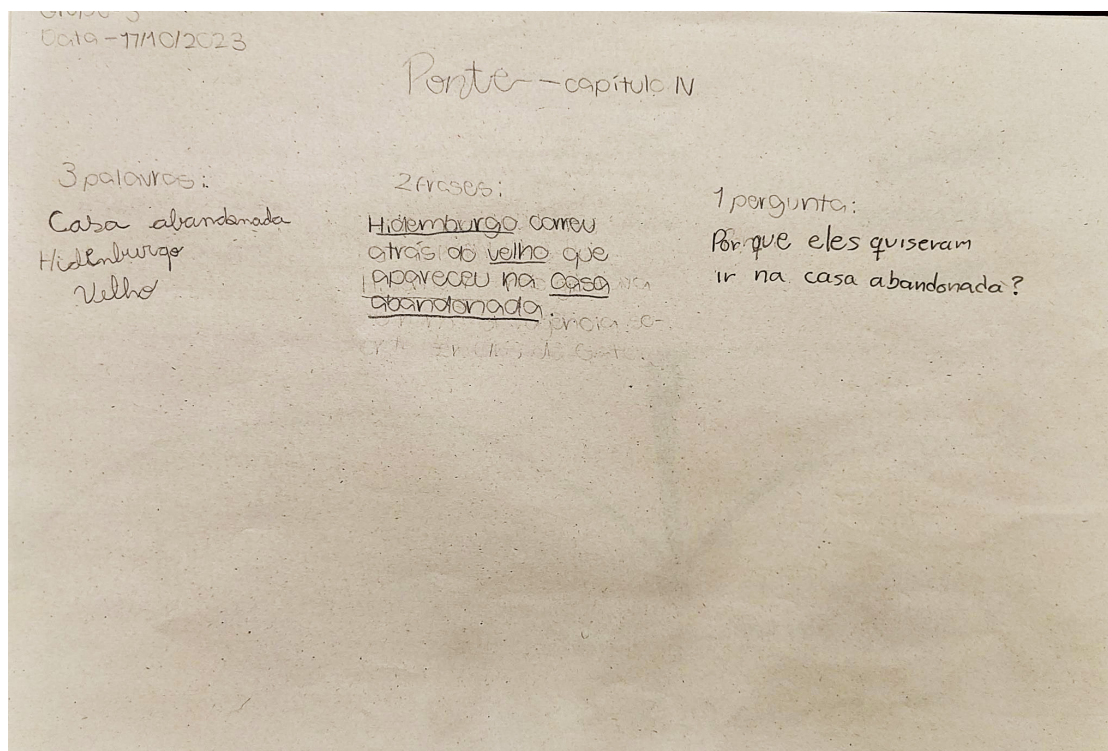 Grupo 3
Data - 17/10/2023
Ponte - capítulo IV
3 palavras:
Casa abandonada
Hidenburgo
Velho
2 frases:
Hidemburgo correu
atrás do velho que
apareceu na casa
abandonada.
1 pergunta:
Por que eles quiseram
ir na casa abandonada?